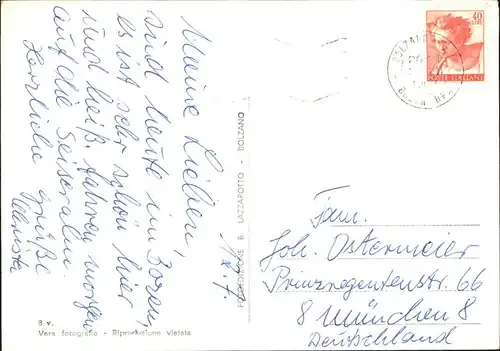 Meine Lieben,
sind heute in Bozen,
es ist sehr schön hier
und heiß, fahren morgen
auf die Seiseralm.
Herzliche Grüße
8 v.
Vera fotografia - Riproduzione vietata
FOTOEDIZIONE B. LAZZAROTTO - BOLZANO
40
POSTE ITALIANE
Fam.
Joh. Ostermeier
Prinzregentenstr. 66
8 München 8
Deutschland